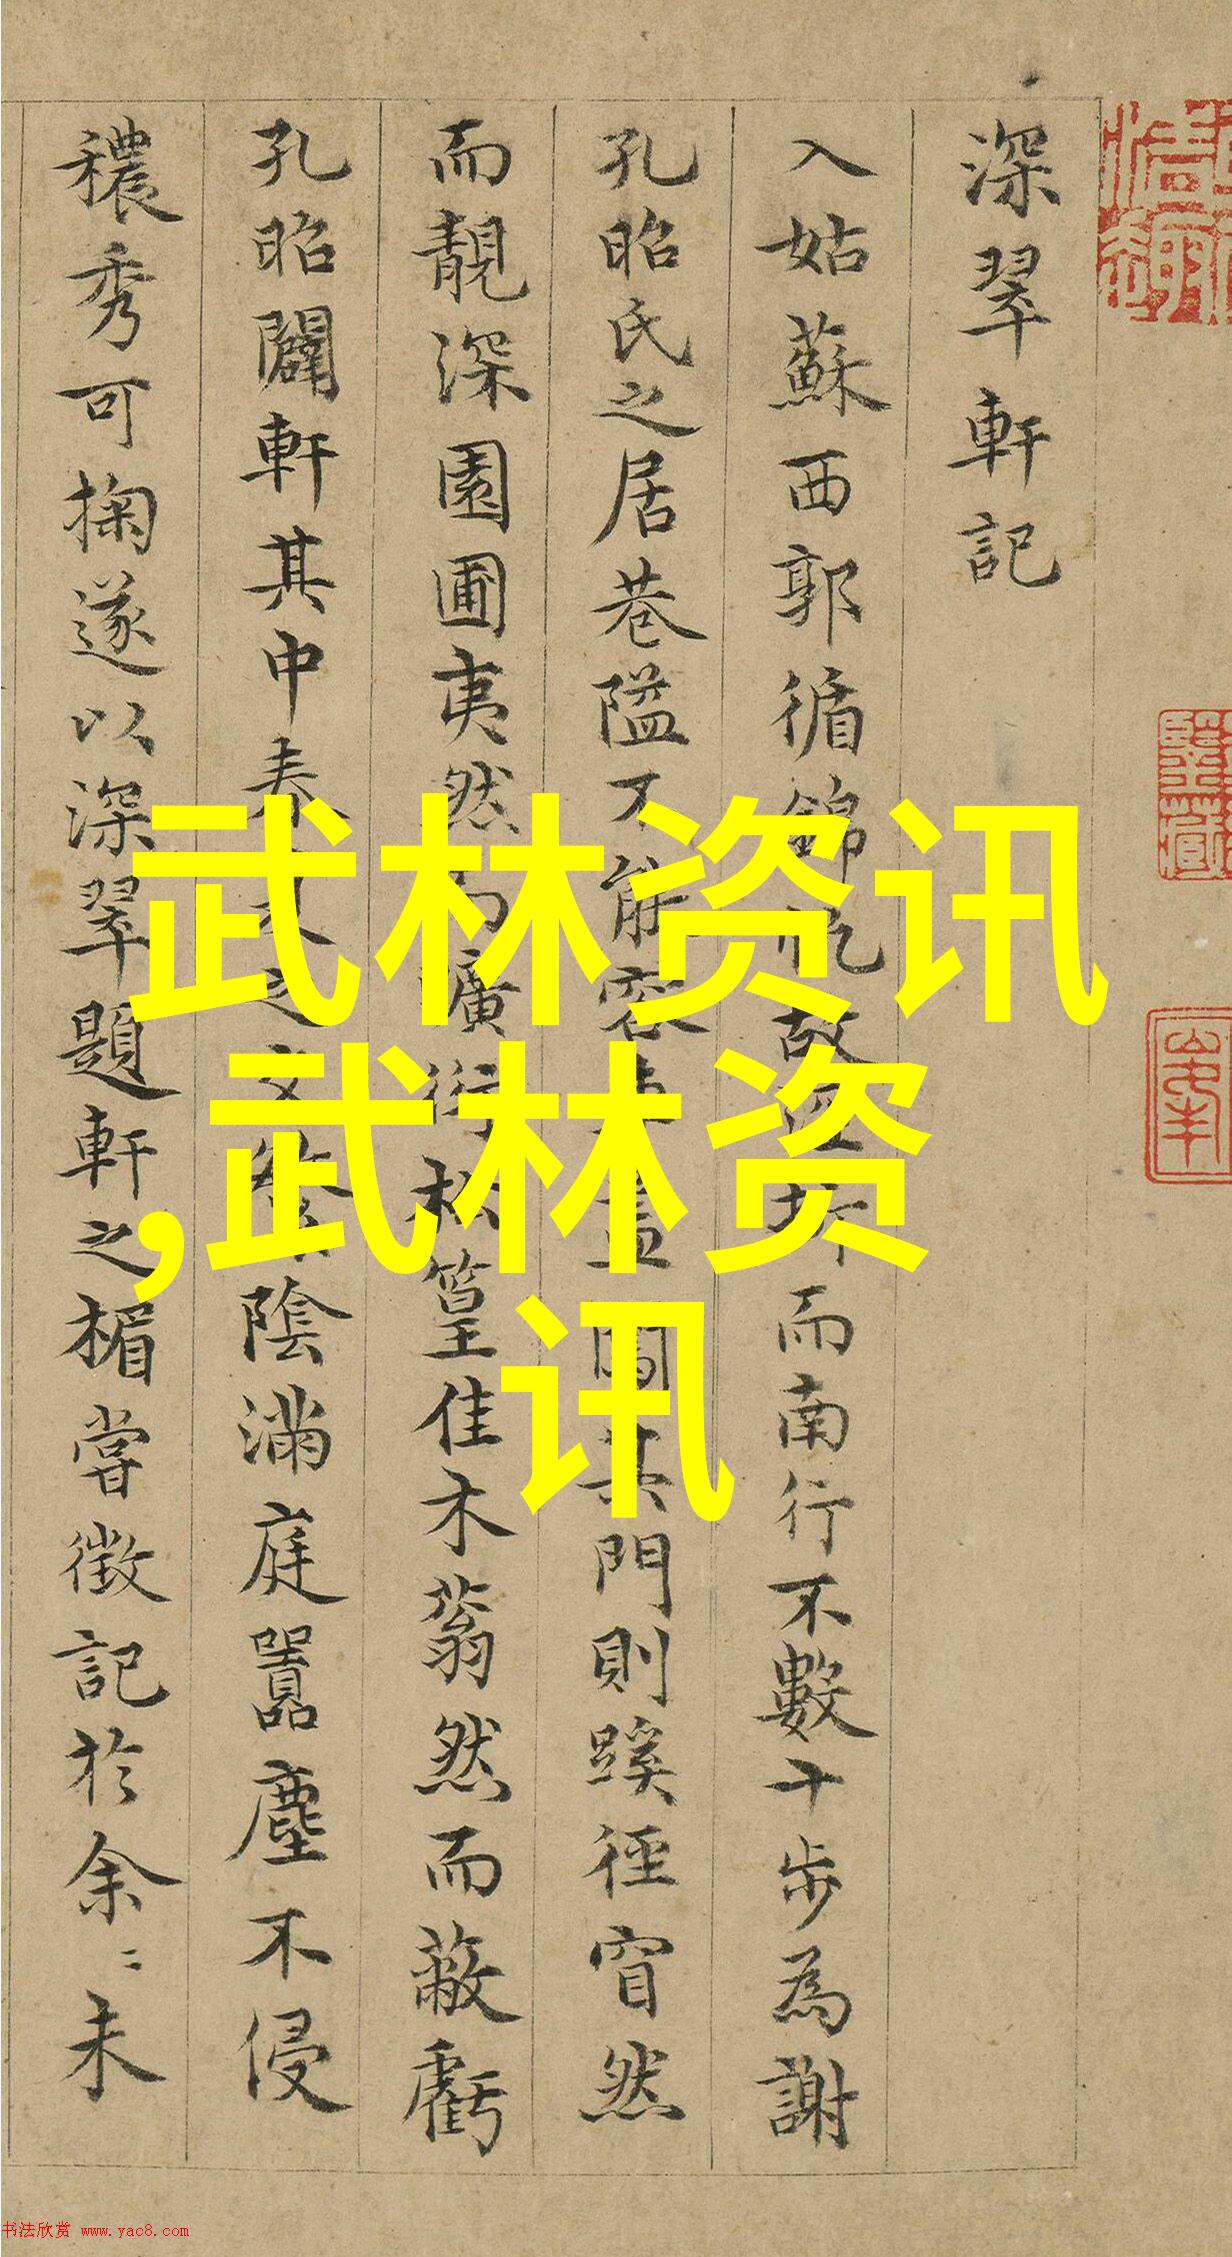 深翠軒記
入姑蘇西郭循錦帆故逕折而南行不數十步為謝
孔昭氏之居巷隘不能容車蓋闖其門則蹊徑窅然
而靚深園圃夷然而曠衍松篁佳木蓊然而蔽虧
孔昭闢軒其中奉陰滿庭囂塵不侵
穠秀可掬遂以深翠題軒之楣嘗徵記於余〻未
武林资讯
,武林资
讯
山本
书法欣赏 www.yac8.com